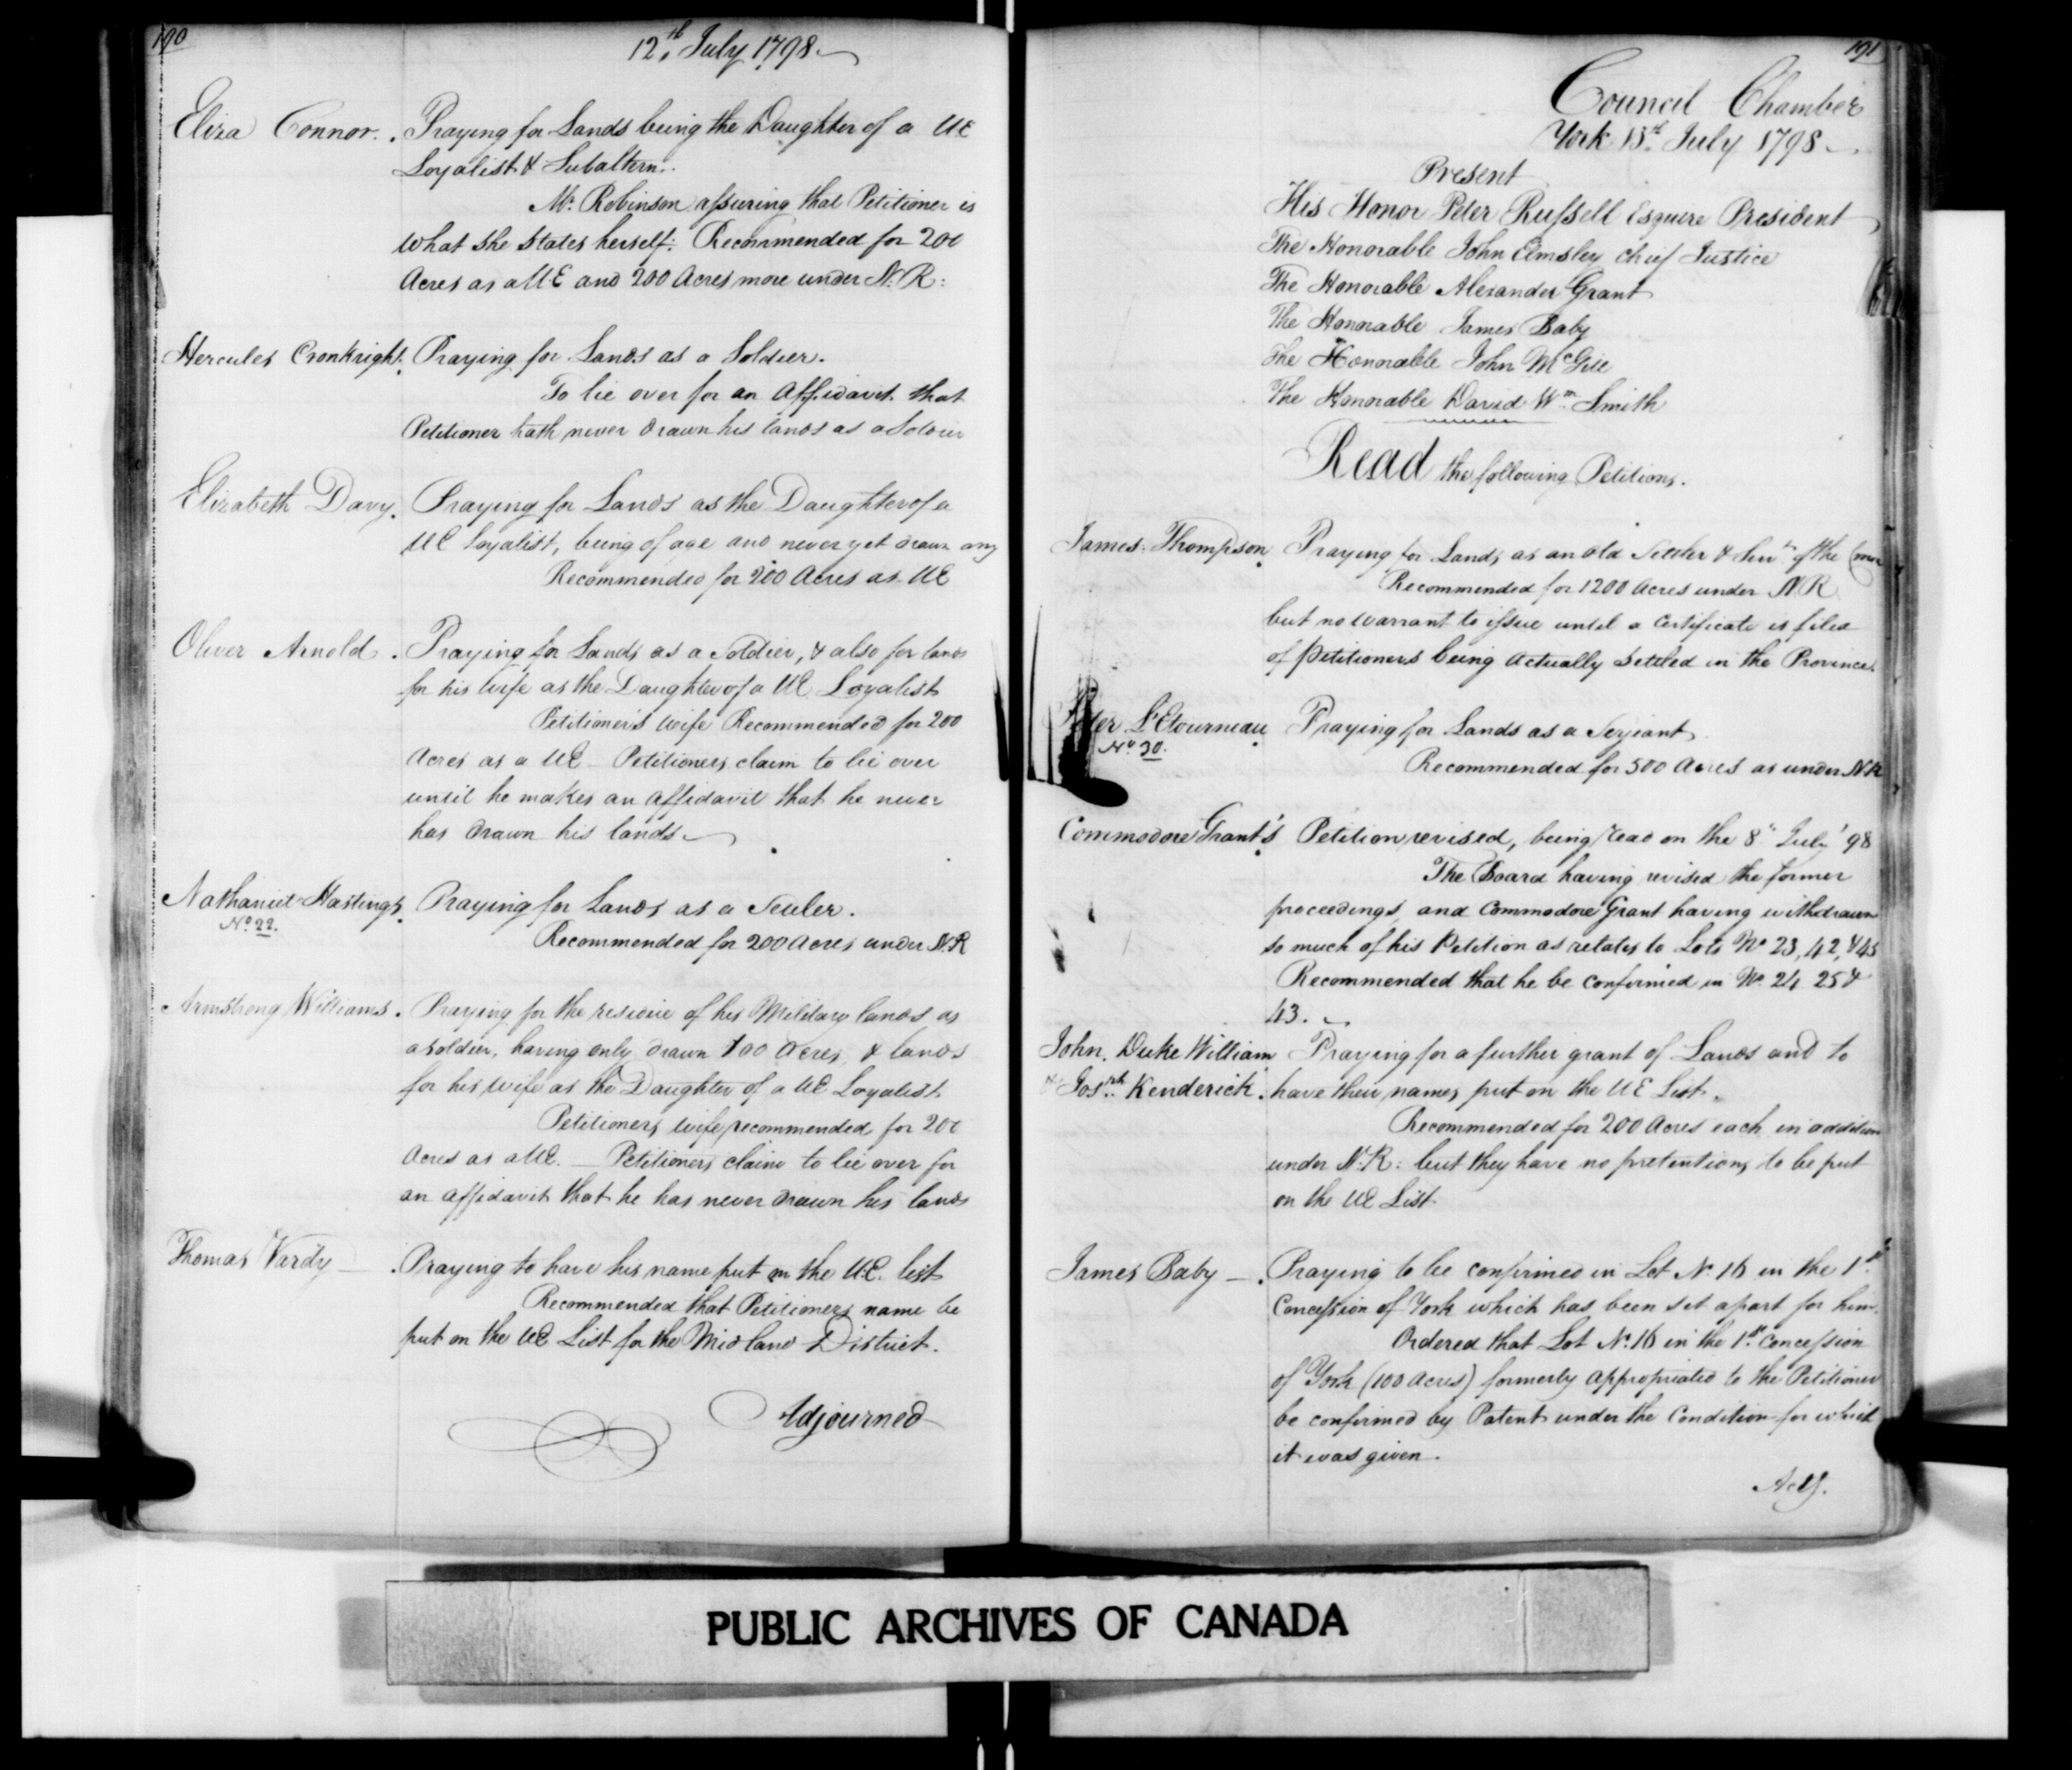 190
12th July 1798
Eliza Connor. Praying for Lands being the Daughter of a UE
Loyalist & Subaltern.
Mr. Robinson assuring that Petitioner is
what she states herself: Recommended for 200
Acres as a UE and 200 Acres more under N: R:
Hercules Cronkright. Praying for Lands as a Soldier.
To lie over for an Affidavit that
Petitioner hath never drawn his lands as a Soldier
Elizabeth Davy. Praying for Lands as the Daughter of a
UE Loyalist, being of age and never yet drawn any
Recommended for 200 Acres as UE
Oliver Arnold. Praying for Lands as a Soldier, & also for lands
for his wife as the Daughter of a UE Loyalist
Petitioner's wife Recommended for 200
Acres as a UE Petitioners claim to lie over
until he makes an affidavit that he never
has drawn his lands
Nathaniel Hastings. Praying for Lands as a Settler.
No. 22. Recommended for 200 Acres under N.R
Armstrong Williams. Praying for the residue of his Military lands as
a Soldier, having only drawn 100 Acres, & lands
for his wife as the Daughter of a UE Loyalist
Petitioners wife recommended for 200
Acres as a UE. Petitioners claim to lie over for
an affidavit that he has never drawn his lands
Thomas Vardy Praying to have his name put on the U.E. list
Recommended that Petitioners name be
put on the UE List for the Midland District.
Adjourned
191
Council Chamber
York 13th July 1798
Present
His Honor Peter Russell Esquire President
The Honorable John Elmsley Chief Justice
The Honorable Alexander Grant
The Honorable James Baby
The Honorable John McGill
The Honorable David Wm. Smith
Read the following Petitions.
James Thompson Praying for Lands as an old Settler & of the
Recommended for 1200 Acres under N R
but no warrant to issue until a Certificate is filed
of Petitioners being actually settled in the Province.
Peter L'Etourneau Praying for Lands as a Serjeant
No. 30. Recommended for 500 Acres as under N R
Commodore Grant's Petition revised, being read on the 8th July '98
The Board having revised the former
proceedings, and Commodore Grant having withdrawn
so much of his Petition as relates to Lots No 23, 42, & 45
Recommended that he be confirmed in No. 24 25 &
43.
John, Duke William Praying for a further grant of Lands and to
& Josph. Kenderick. have their names put on the UE List.
Recommended for 200 Acres each in addition
under N: R: but they have no pretentions to be put
on the UE List
James Baby Praying to be confirmed in Lot No. 16 in the 1st
Concession of York which has been set apart for him.
Ordered that Lot No. 16 in the 1st Concession
of York (100 acres) formerly appropriated to the Petitioner
be confirmed by Patent under the Condition for which
it was given.
PUBLIC ARCHIVES OF CANADA